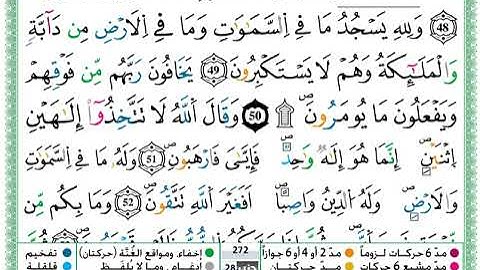 48 وَلِلهِ يَسْجُدُ مَا فِے اِ۬لسَّمَٰوَٰتِ وَمَا فِے اِ۬لَارْضِ مِن دَآبَّةٖ
وَالْمَلَٰٓئِكَةُ وَهُمْ لَا يَسْتَكْبِرُونَۖ 49 يَخَافُونَ رَبَّهُم مِّن فَوْقِهِمْ
وَيَفْعَلُونَ مَا يُومَرُونَ۩ 50 وَقَالَ اَ۬للَّهُ لَا تَتَّخِذُوٓاْ إِلَٰهَيْنِ
اِ۪ثْنَيْنِۖ إِنَّمَا هُوَ إِلَٰهٞ وَٰحِدٞۖ فَإِيَّٰيَ فَارْهَبُونِۖ 51 وَلَهُۥ مَا فِے اِ۬لسَّمَٰوَٰتِ
وَالَارْضِۖ وَلَهُ اُ۬لدِّينُ وَاصِباًۖ اَفَغَيْرَ اَ۬للَّهِ تَتَّقُونَۖ 52 وَمَا بِكُم مِّن
مدّ 6 حركات لزوماً مدّ 2 أو 4 أو 6 جوازاً 272 إخفاء، ومواقع الغُنَّة (حركتان) تفخيم
مدّ مشبع 6 حركات مدّ حركتان 28 إدغام، وما لا يُلفَظ قلقلة